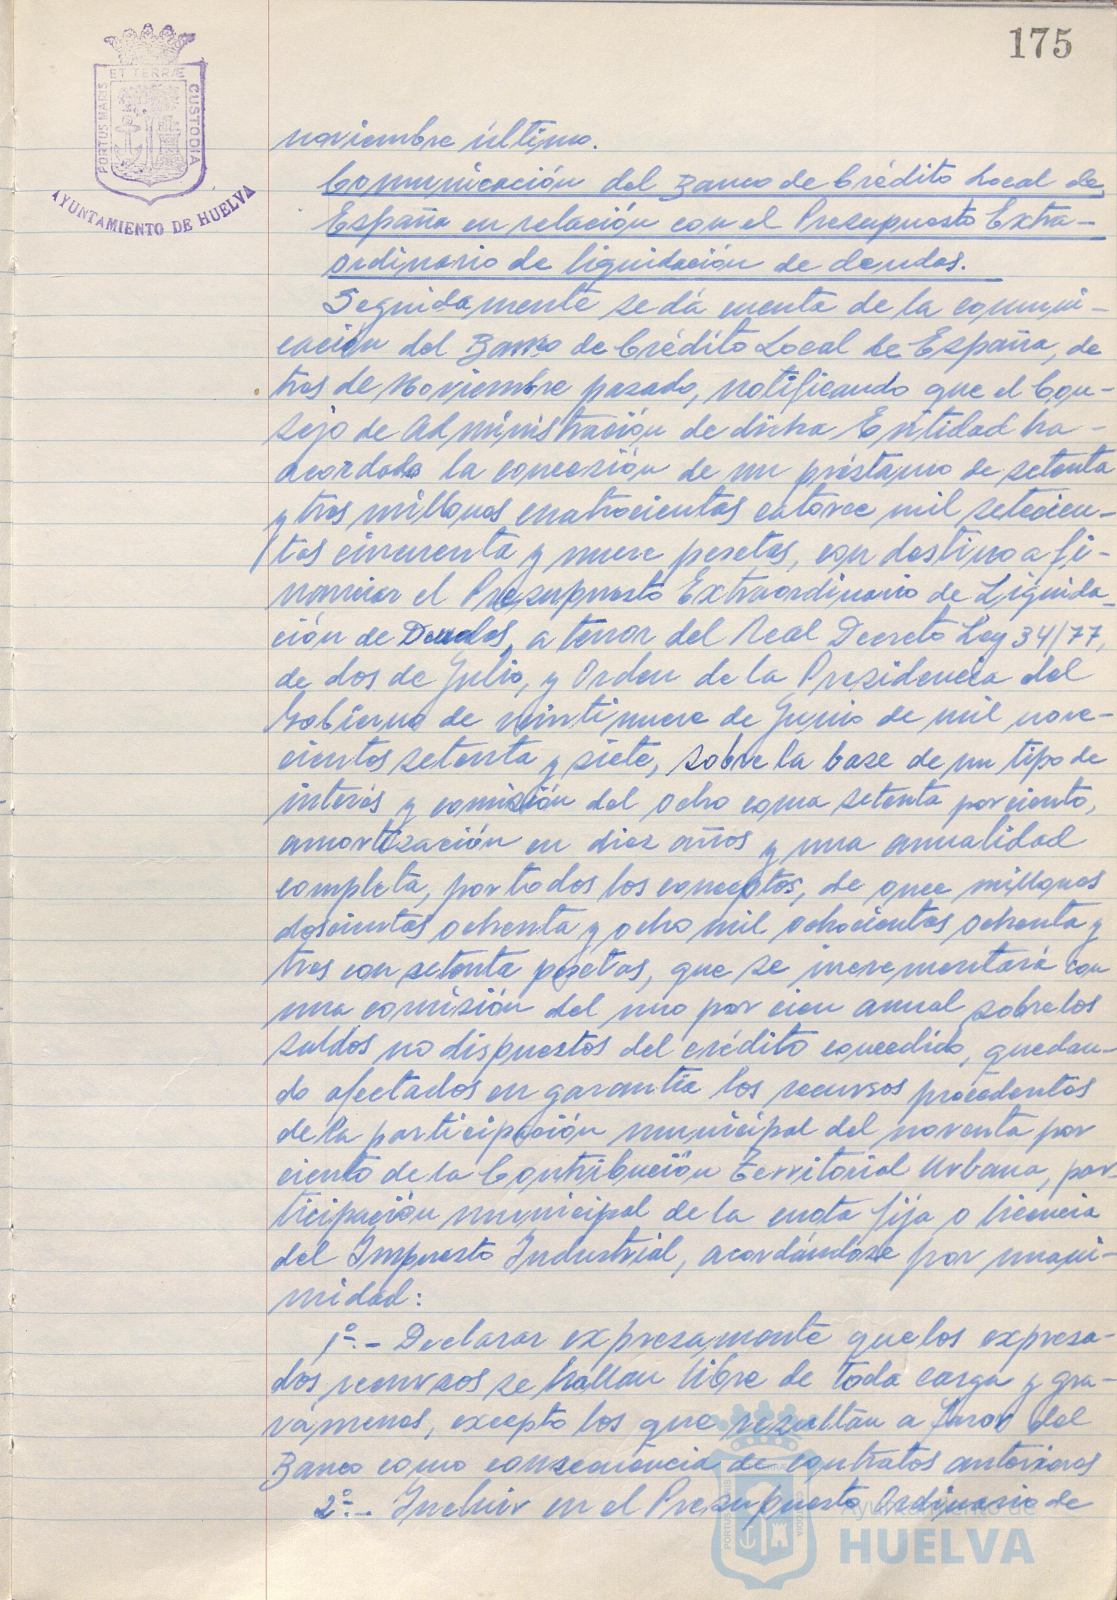 175
ET TERRÆ
PORTUS MARIS
CUSTODIA
AYUNTAMIENTO DE HUELVA
noviembre último.
Comunicación del Banco de Crédito Local de
España en relación con el Presupuesto Extra-
ordinario de liquidación de deudas.
Seguidamente se dá cuenta de la comuni-
cación del Banco de Crédito Local de España, de
tres de Noviembre pasado, notificando que el Con-
sejo de Administración de dicha Entidad ha
acordado la concesión de un préstamo de setenta
y tres millones cuatrocientas catorce mil setecien-
tas cincuenta y nueve pesetas, con destino a fi-
nanciar el Presupuesto Extraordinario de Liquida-
ción de Deudas, a tenor del Real Decreto Ley 34/77,
de dos de Julio, y Orden de la Presidencia del
Gobierno de veintinueve de Junio de mil nove-
cientos setenta y siete, sobre la base de un tipo de
interés y comisión del ocho coma setenta por ciento,
amortización en diez años y una anualidad
completa, por todos los conceptos, de once millones
doscientas ochenta y ocho mil ochocientas ochenta y
tres con setenta pesetas, que se incrementará con
una comisión del uno por cien anual sobre los
saldos no dispuestos del crédito concedido, quedan-
do afectados en garantía los recursos procedentes
de la participación municipal del noventa por
ciento de la Contribución Territorial Urbana, par
ticipación municipal de la cuota fija o licencia
del Impuesto Industrial, acordándose por unani-
midad:
1º.- Declarar expresamente que los expresa-
dos recursos se hallan libre de toda carga y gra-
vámenes, excepto los que resultan a favor del
Banco como consecuencia de contratos anteriores
2º.- Incluir en el Presupuesto Ordinario de
Ayuntamiento de
HUELVA